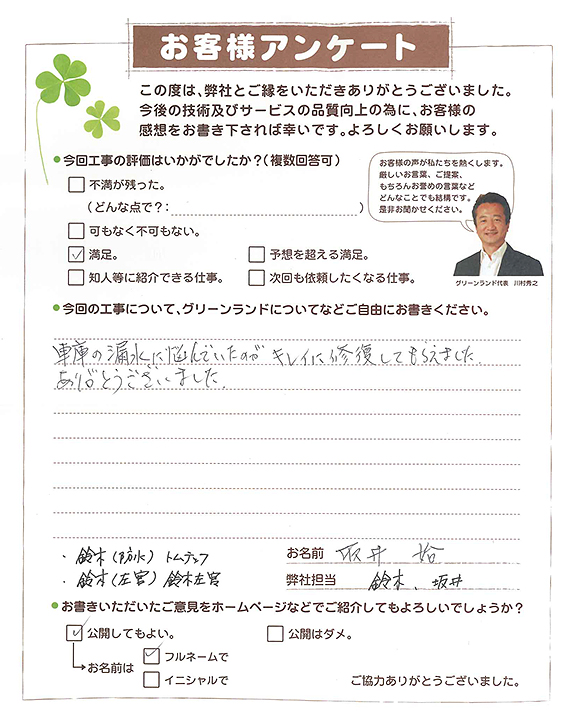 お客様アンケート
この度は、弊社とご縁をいただきありがとうございました。
今後の技術及びサービスの品質向上の為に、お客様の
感想をお書き下されば幸いです。よろしくお願いします。
今回工事の評価はいかがでしたか?(複数回答可)
不満が残った。
(どんな点で?: )
可もなく不可もない。
満足。
予想を超える満足。
知人等に紹介できる仕事。
次回も依頼したくなる仕事。
お客様の声が私たちを熱くします。
厳しいお言葉、ご提案、
もちろんお誉めの言葉など
どんなことでも結構です。
是非お聞かせください。
グリーンランド代表 川村秀之
今回の工事について、グリーンランドについてなどご自由にお書きください。
車庫の漏水に悩んでいたのが キレイに修復してもらえました。
ありがとうございました。
・鈴木(防水)
・鈴木(左官) 鈴木左官
お名前 坂井
弊社担当 鈴木、坂井
お書きいただいたご意見をホームページなどでご紹介してもよろしいでしょうか?
公開してもよい。
公開はダメ。
お名前は
フルネームで
イニシャルで
ご協力ありがとうございました。